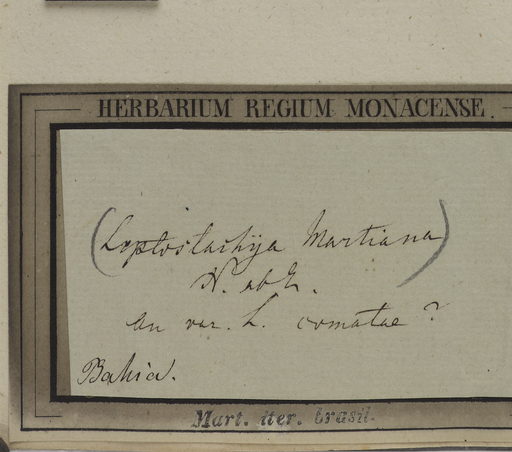 HERBARIUM REGIUM MONACENSE.
(Leptostachya Martiana)
N. ab E.
an var. L. comatae?
Bahia.
Mart. iter. brasil.